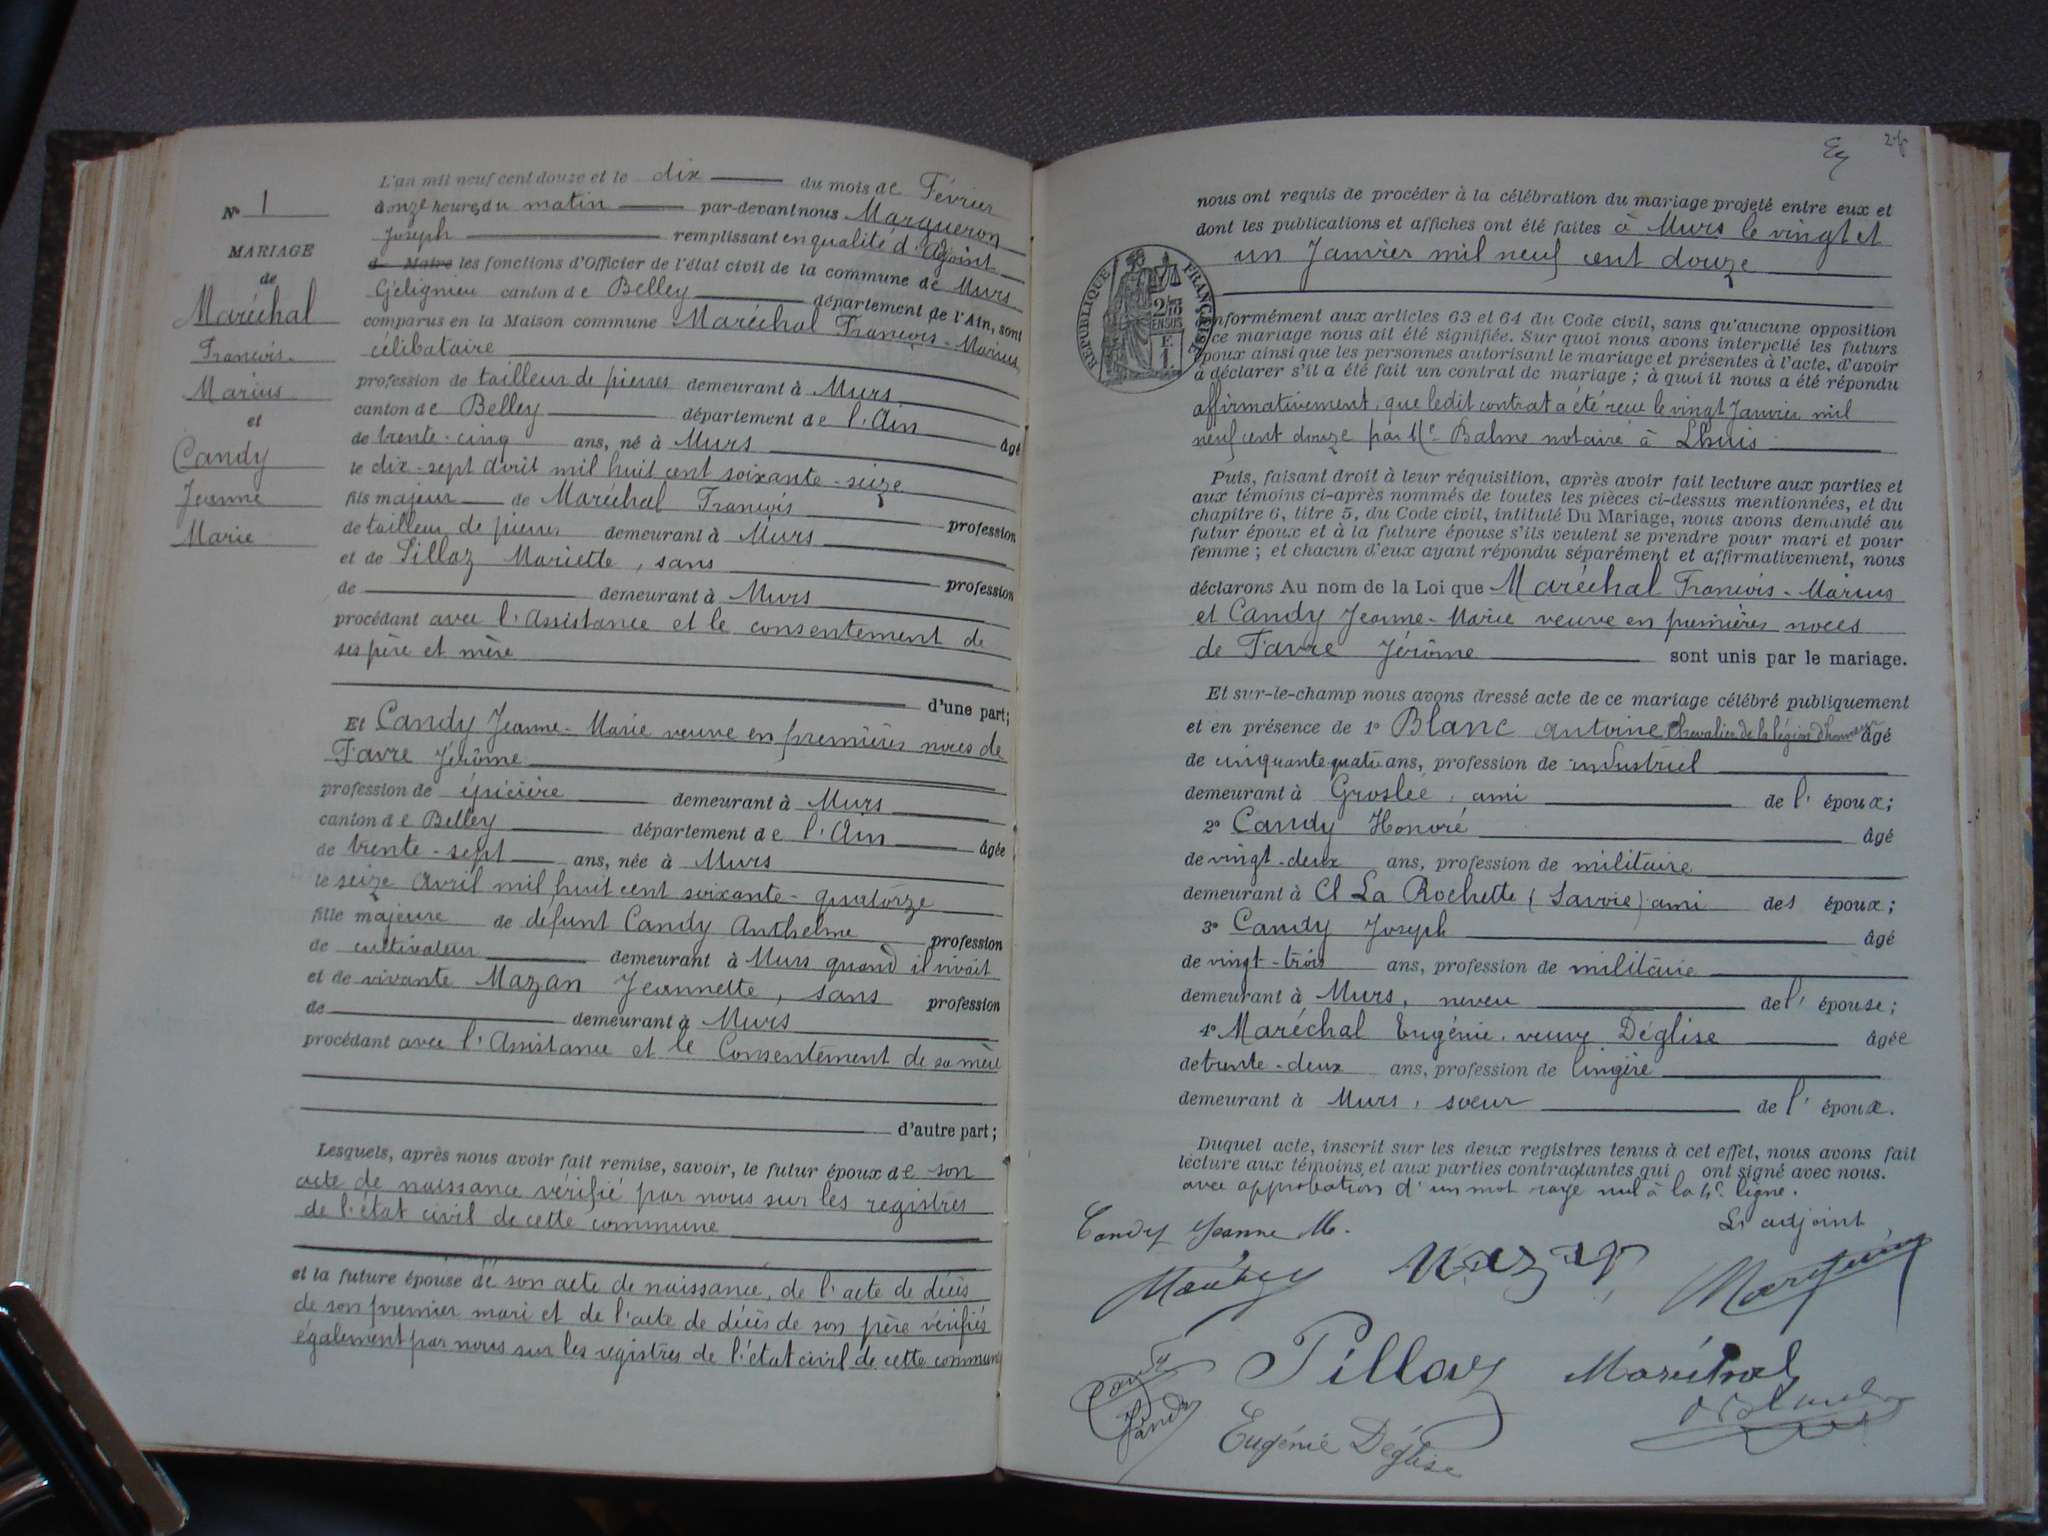 N° 1
MARIAGE
de
Maréchal
François
Marius
et
Candy
Jeanne
Marie
L'an mil neuf cent douze et le dix du mois de Février
à onze heures du matin par-devant nous Margueron
Joseph remplissant en qualité d'Adjoint
de Maire les fonctions d'Officier de l'état civil de la commune de Murs
Gélignieu canton de Belley département de l'Ain, sont
comparus en la Maison commune Maréchal François-Marius,
célibataire
profession de tailleur de pierres demeurant à Murs
canton de Belley département de l'Ain âgé
de trente-cinq ans, né à Murs
le dix-sept avril mil huit cent soixante-seize
fils majeur de Maréchal François profession
de tailleur de pierres demeurant à Murs
et de Pillaz Mariette, sans profession
de demeurant à Murs
procédant avec l'Assistance et le consentement de
ses père et mère
d'une part;
Et Candy Jeanne-Marie veuve en premières noces de
Favre Jérôme
profession de épicière demeurant à Murs
canton de Belley département de l'Ain âgée
de trente-sept ans, née à Murs
le seize Avril mil huit cent soixante-quatorze
fille majeure de défunt Candy Anthelme profession
de cultivateur demeurant à Murs quand il vivait
et de vivante Mazan Jeannette, sans profession
de demeurant à Murs
procédant avec l'Assistance et le Consentement de sa mère
d'autre part;
Lesquels, après nous avoir fait remise, savoir, le futur époux de son
acte de naissance vérifié par nous sur les registres
de l'état civil de cette commune
et la future épouse de son acte de naissance, de l'acte de décès
de son premier mari et de l'acte de décès de son père vérifiés
également par nous sur les registres de l'état civil de cette commune
nous ont requis de procéder à la célébration du mariage projeté entre eux et
dont les publications et affiches ont été faites à Murs le vingt et
un Janvier mil neuf cent douze
RÉPUBLIQUE FRANÇAISE
conformément aux articles 63 et 64 du Code civil, sans qu'aucune opposition
à ce mariage nous ait été signifiée. Sur quoi nous avons interpellé les futurs
époux ainsi que les personnes autorisant le mariage et présentes à l'acte, d'avoir
à déclarer s'il a été fait un contrat de mariage; à quoi il nous a été répondu
affirmativement, que ledit contrat a été reçu le vingt Janvier mil
neuf cent douze par Me Balme notaire à Lhuis
Puis, faisant droit à leur réquisition, après avoir fait lecture aux parties et
aux témoins ci-après nommés de toutes les pièces ci-dessus mentionnées, et du
chapitre 6, titre 5, du Code civil, intitulé Du Mariage, nous avons demandé au
futur époux et à la future épouse s'ils veulent se prendre pour mari et pour
femme; et chacun d'eux ayant répondu séparément et affirmativement, nous
déclarons Au nom de la Loi que Maréchal François-Marius
et Candy Jeanne-Marie veuve en premières noces
de Favre Jérôme sont unis par le mariage.
Et sur-le-champ nous avons dressé acte de ce mariage célébré publiquement
et en présence de 1° Blanc Antoine Chevalier de la légion d'honneur âgé
de cinquante-quatre ans, profession de industriel
demeurant à Groslée, ami de l'époux;
2° Candy Honoré âgé
de vingt-deux ans, profession de militaire
demeurant à La Rochette (Savoie) ami des époux;
3° Candy Joseph âgé
de vingt-trois ans, profession de militaire
demeurant à Murs, neveu de l'épouse;
4° Maréchal Eugénie, veuve Déglise âgée
de trente-deux ans, profession de lingère
demeurant à Murs, sœur de l'époux.
Duquel acte, inscrit sur les deux registres tenus à cet effet, nous avons fait
lecture aux témoins et aux parties contractantes qui ont signé avec nous.
avec approbation d'un mot rayé nul à la 4e ligne.
Candy Jeanne M.
L'adjoint
Mazan
Margueron
Pillaz
Maréchal
Candy
Eugénie Déglise